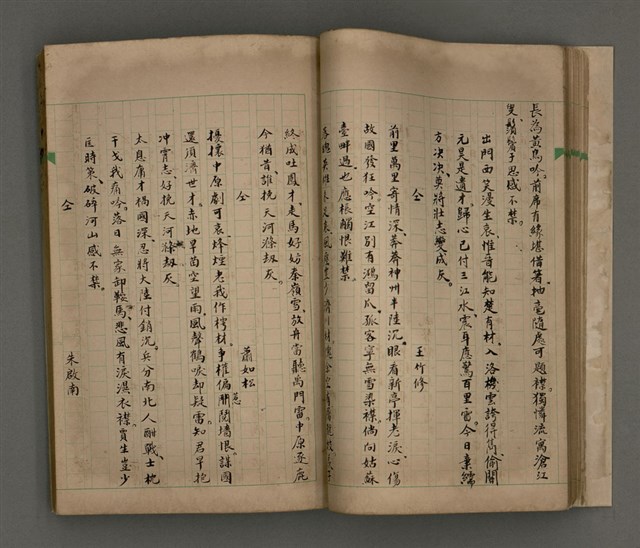 長為黃鳥吟。前席有緣堪借箸。抽毫隨處可題襟。獨憐流寓滄江
叟。鬚鬢子思感不禁。
出門西笑漫生哀。惟昔能知楚有材。入洛機雲誇得儁。偷閒
元是遺才。歸心已付三江水。震耳虛驚百里雷。今日棄繻
方決決。莫將壯志變成灰。
仝 王竹修
前里萬里寄情深。莽莽神州半陸沉。眼看新亭揮老淚。心傷
故國發狂吟。空江別有鴻留爪。孤客寧無雪染襟。倘向姑蘇
臺畔過。也應根觸恨難禁。
終成吐鳳才。走馬好妨秦嶺雪。放舟當聽禹門雷。中原逐鹿
今猶昔。誰挽天河滌劫灰。
仝 蕭如松
擾攘中原劇可哀。烽煙老我作樗材。爭權偏開鬩墻恨。謀國
還須濟世才。赤地旱苗空望雨。風聲鶴唳却疑雷。知君早抱
冲霄志。好挽天河滌劫灰。
仝 朱啟南
太息庸才禍國深。忍將大陸付銷沉。兵分南北人酣戰。士枕
干戈我痛吟。落日無家卸鞍馬。悲風有淚濕衣襟。賈生豈少
匡時策。破碎河山感不禁。